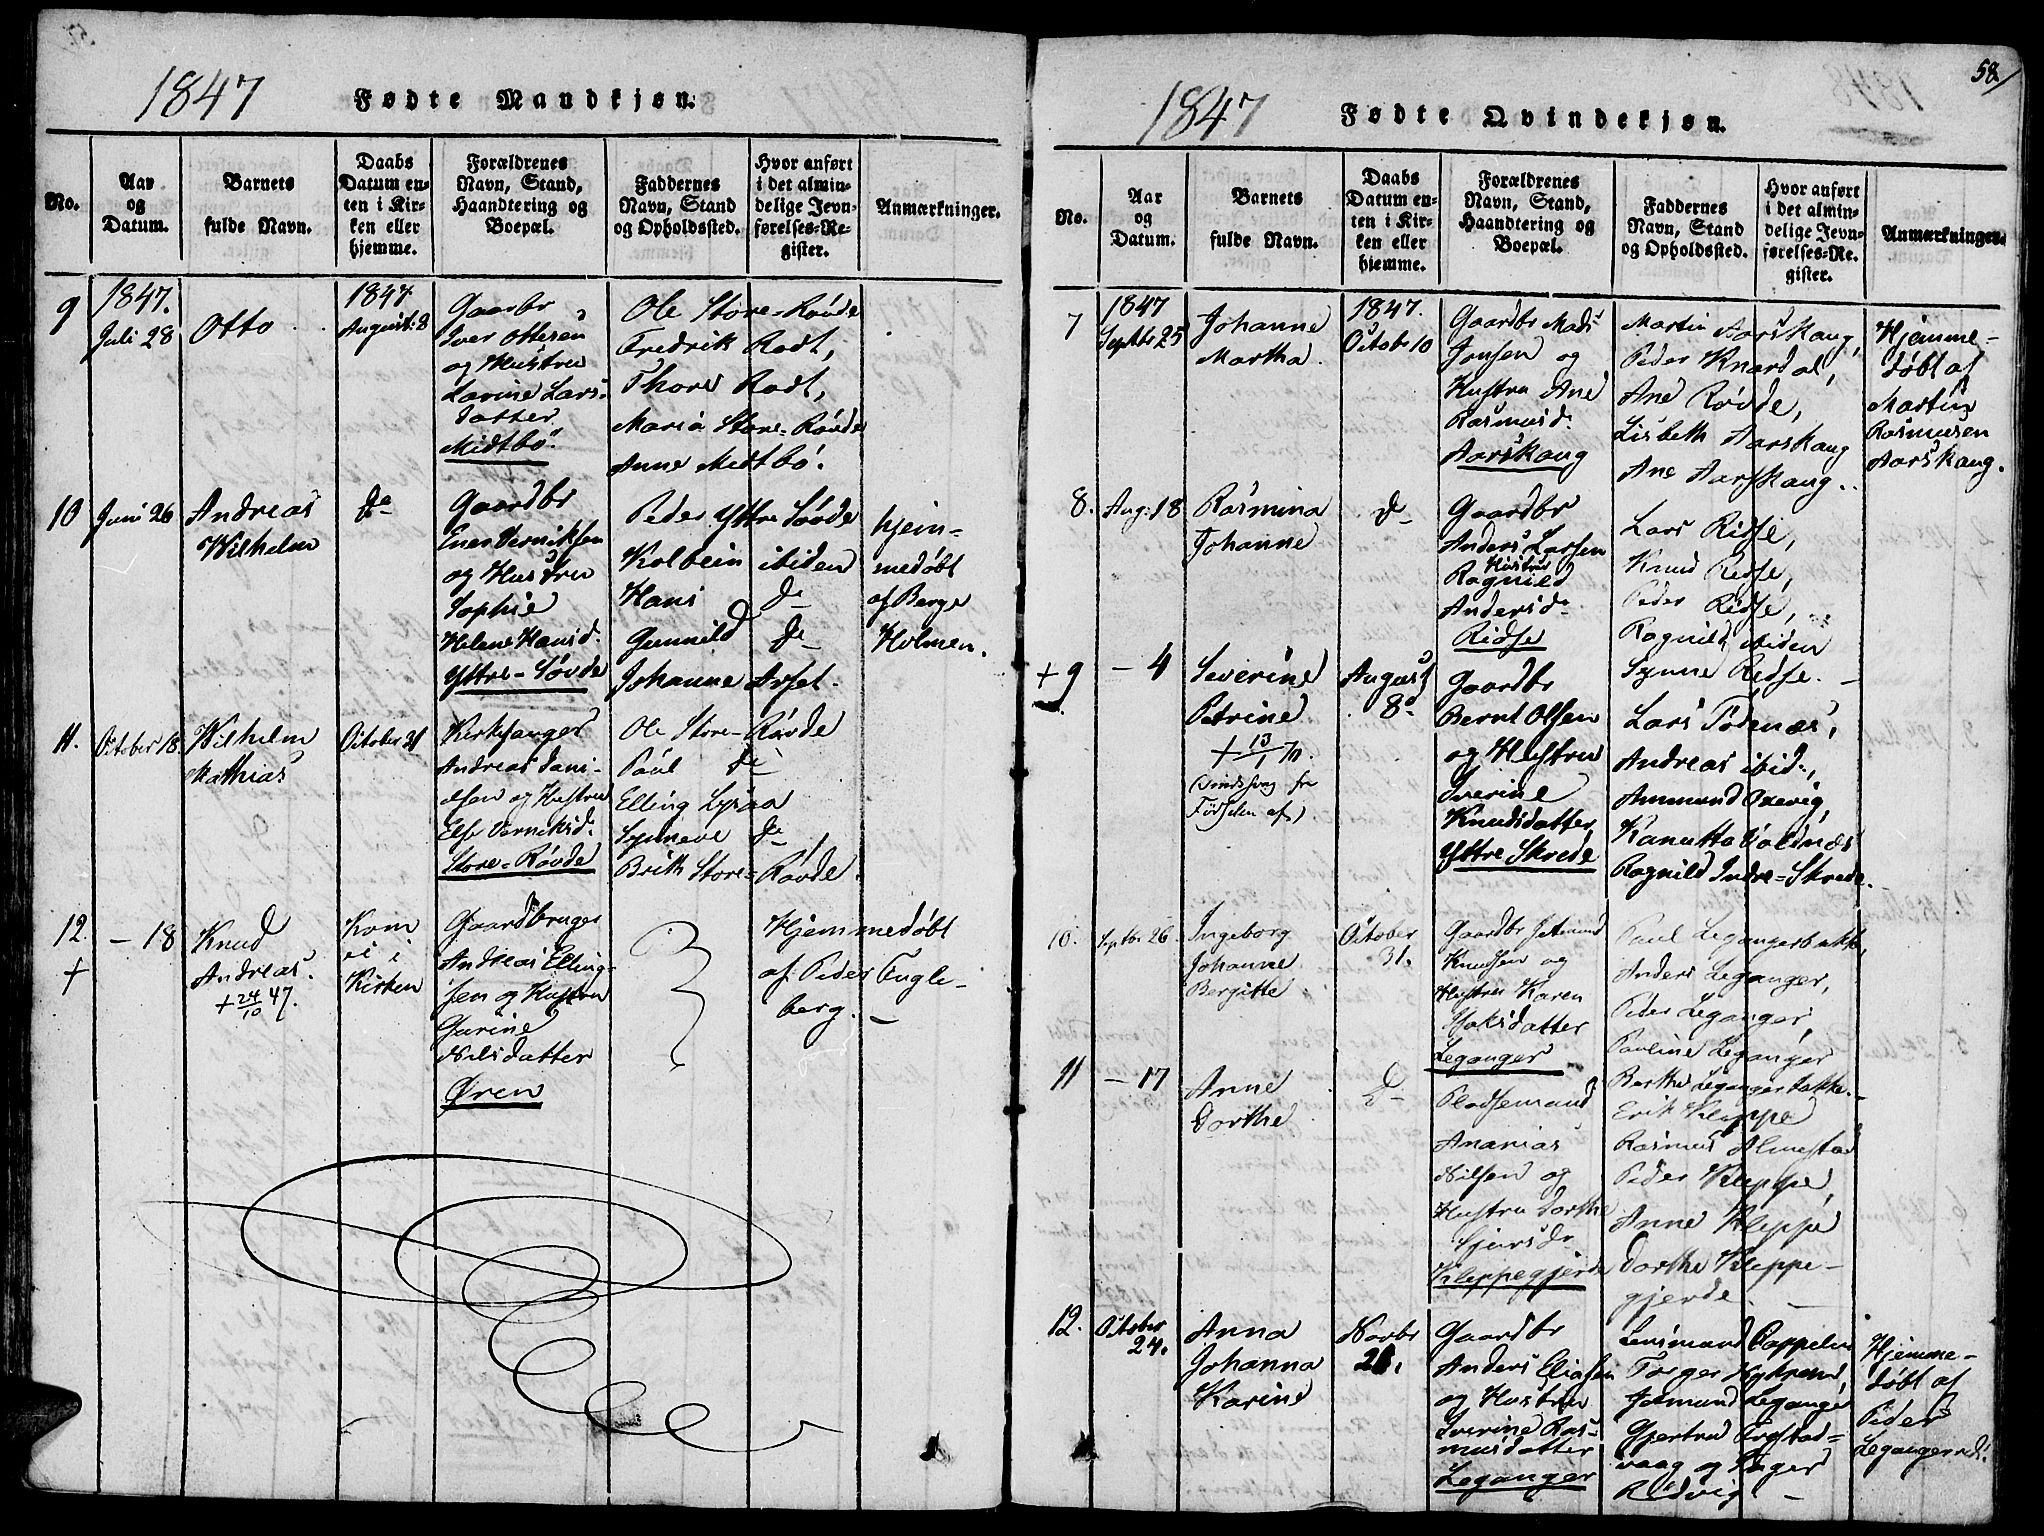 1847
Fødte Mandkjøn.
No.
Aar
og
Datum.
Barnets
fulde Navn.
Daabs
Datum en-
ten i Kir-
ken eller
hjemme.
Forældrenes
Navn, Stand,
Haandtering og
Boepæl.
Faddernes
Navn, Stand
og Opholdssted.
Hvor anført
i det almin-
delige Jevn-
førelses-Re-
gister.
Anmærkninger.
9
1847.
Juli 28
Otto
1847
August 8
Gaardbr
Iver Ottesen
og Hustru
Lavine Lars-
datter
Midtbö.
Ole Store-Rövde
Fredrik Rodt,
Thore Rodt,
Maria Store-Rövde
Anne Midtbö.
10
Juni 26
Andreas
Wilhelm
do
Gaardbr
Enes Verniksen
og Hustru
Sophie
Helene Hansd.
Yttre-Sövde
Peder Yttre Sövde
Kolbein ibiden
Hans do
Gunnild do
Johanne Arset.
hjem-
medøbt
af Berge
Holmen.
11.
October 18.
Wilhelm
Mathias
October 31
Kirkesanger
Andreas Dani-
elsen og Hustru
Else Verniksd.
Store-Rövde
Ole Store-Rövde
Paul do
Elling Lyraa
Synneve do
Brith Store-Rövde.
12.
+
- 18
Knud
Andreas.
+ 24/10 47.
Kom
ei i
Kirken
Gaardbruger
Andreas Elling-
sen og Hustru
Gurine
Nilsdatter
Øren
Hjemmedøbt
af Peder Fugle-
berg.
58
1847
Fødte Qvindekjøn.
No.
Aar
og
Datum.
Barnets
fulde Navn.
Daabs
Datum en-
ten i Kir-
ken eller
hjemme.
Forældrenes
Navn, Stand,
Haandtering og
Boepæl.
Faddernes
Navn, Stand
og Opholdssted.
Hvor anført
i det almin-
delige Jevn-
førelses-Re-
gister.
Anmærkninger.
7
1847
Septbr 25
Johanne
Martha.
1847.
Octobr 10
Gaardbr Mads
Jonsen og
Hustru Ane
Rasmusd.
Aarskaug
Martin Aarskaug,
Peder Knardal,
Ane Rövde,
Lisbeth Aarskaug
Ane Aarskaug.
Hjemme-
døbt af
Martin
Rasmusen
Aarskaug.
8.
Aug. 18
Rasmina
Johanne
do
Gaardbr
Anders Larsen
Hustru
Ragnild
Andersd.
Ridse
Lars Ridse,
Knud Ridse,
Peder Ridse,
Ragnild ibiden
Synne Ridse.
+ 9
- 4
Severine
Petrine
+ 13/1 70.
Sindssvag fra
Fødselen af)
August
8.
Gaardbr
Bernt Olsen
og Hustru
Iverine
Knudsdatter
Yttre Skrede
Lars Todenæs,
Andreas ibid.,
Ammund Oxevig,
Kanutte Valdnæs
Ragnild Indre-Skrede.
10.
Septbr 26
Ingeborg
Johanne
Bergitte
October
31.
Gaardbr Jetmund
Knudsen og
Hustru Karen
Isaksdatter
Leganger
Paul Legangerbakke
Anders Leganger,
Peder Leganger,
Pauline Leganger
Berthe Legangerbakke.
11
- 17
Anne
Dorthe
do
Pladsemand
Ananias
Nilsen og
Hustru Dorthe
Sjursdr
Kleppegjerde
Erik Kleppe
Rasmus Almestad
Peder Kleppe,
Anne Kleppe
Dorthe Kleppe-
gjerde.
12.
October
24.
Anna
Johanna
Karine
Novbr
21.
Gaardbr
Anders Eliasen
og Hustru
Iverine Ras-
musdatter
Leganger
Lensmand Cappelen
Torger
Jetmund Leganger
Gjertrud Frostad-
vaag og Inger
Rödvig.
Hjemme-
døbt af
Peder
Leganger